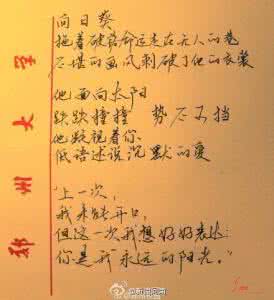 向日葵
拖着破衣命运走在无人的巷
尽堪的画风刺破了他的衣装
他面向太阳
跌跌撞撞 势不可挡
他皎视着你
低语述说沉默的爱
"上一次,
我未能开口,
但这一次我想好好表达:
你是我永远的阳光。"
郑州大学